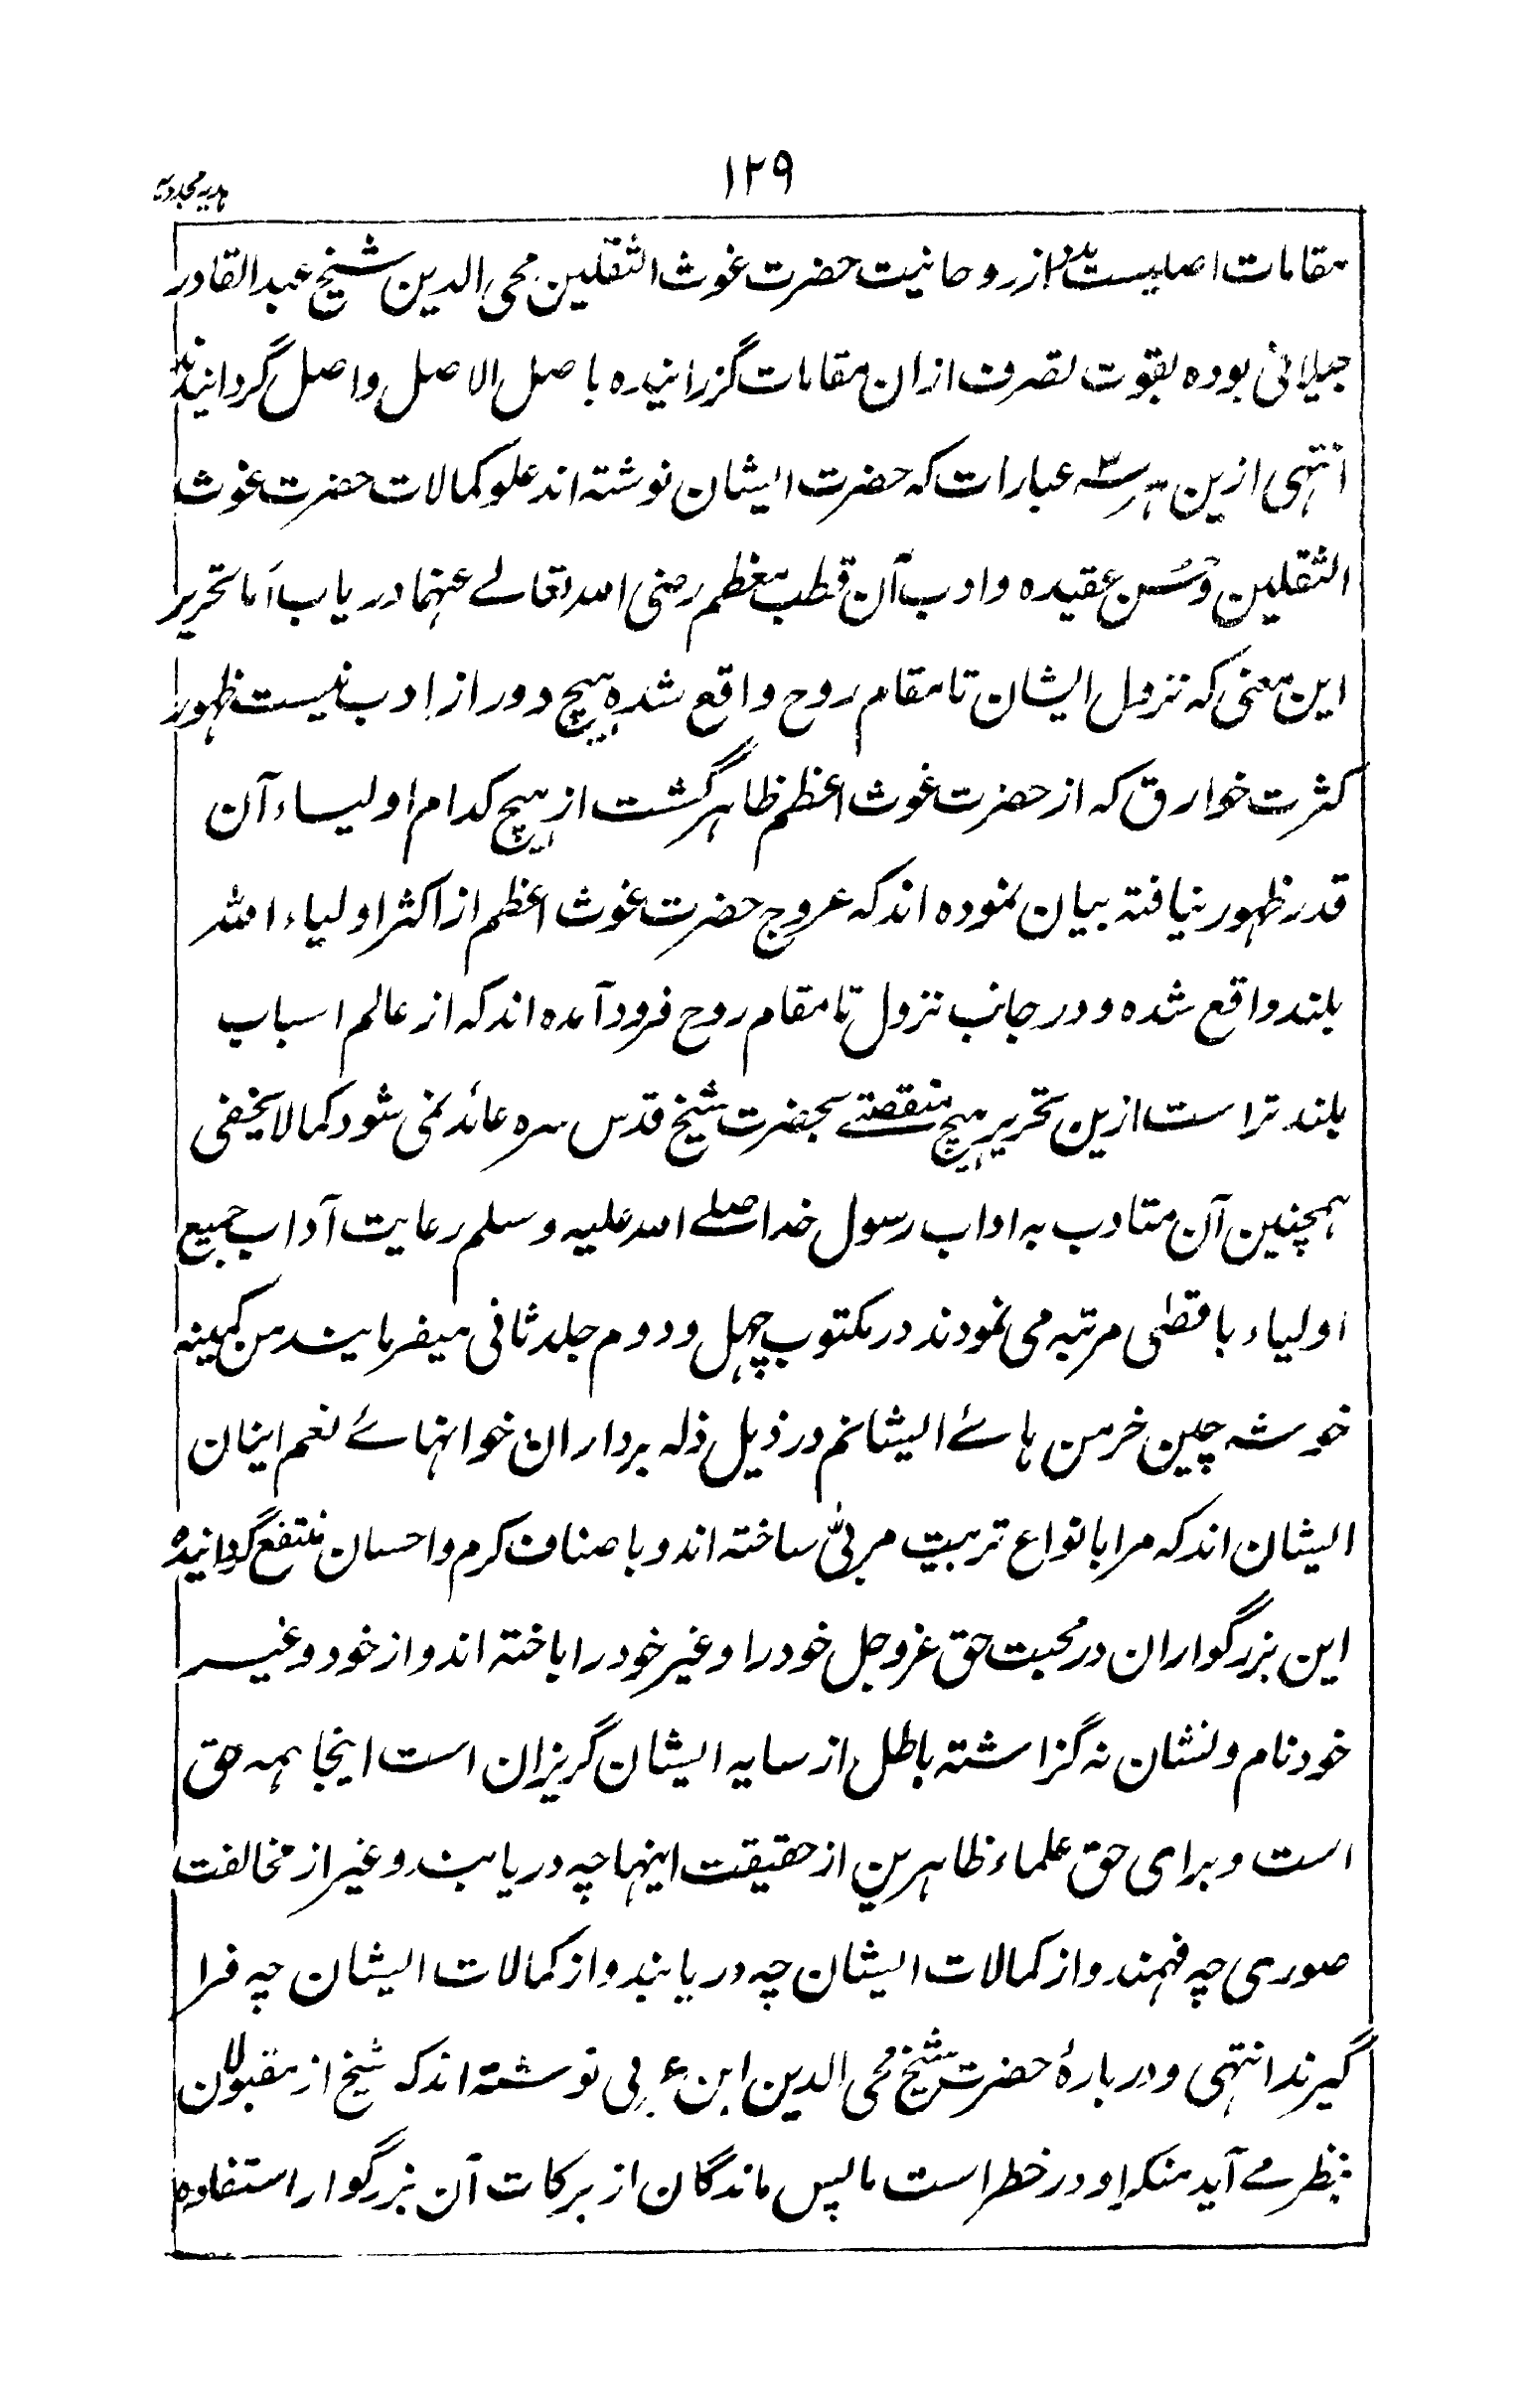 ۱۲۹
ہدیہ مجددیہ
مقامات اصلیست مدد از روحانیت حضرت غوث الثقلین محی الدین شیخ عبدالقادر
جیلانی بوده بقوت تصرف ازان مقامات گزرانیده باصل الاصل واصل گردانیدند
انتهی ازین هر سه عبارات که حضرت ایشان نوشته اند علو کمالات حضرت غوث
الثقلین و حُسن عقیده وادب آن قطب معظم رضی الله تعالے عنهما دریاب اَما تحریر
این معنی که نزول ایشان تا مقام روح واقع شده هیچ دور از ادب نیست ظهور
کثرت خوارق که از حضرت غوث اعظم ظاهر گشت از هیچ کدام اولیاء آن
قدر ظهور نیافته بیان نموده اند که عروج حضرت غوث اعظم از اکثر اولیاء الله
بلند واقع شده و در جانب نزول تا مقام روح فرود آمده اند که از عالم اسباب
بلند تر است ازین تحریر هیچ منقصتے بحضرت شیخ قدس سره عائد نمی شود کما لا یخفی
همچنین آن متادب به اداب رسول خدا صلے الله علیه وسلم رعایت آداب جمیع
اولیاء باقتضی مرتبه می نمودند در مکتوب چهل و دوم جلد ثانی میفرمایند من کمینه
خوشه چین خرمن هائے ایشانم در ذیل ذله برداران خوانهائے نعم اینان
ایشان اند که مرا بانواع تربیت مربیّٰ ساخته اند و باصناف کرم واحسان منتفع گردانیده
این بزرگواران در محبت حق عزوجل خود را و غیر خود را باخته اند و از خود و غیر
خود نام و نشان نه گزاشته باطل از سایه ایشان گریزان است اینجا همه حق
است و برای حق علماء ظاهربین از حقیقت اینها چه دریابند و غیر از مخالفت
صوری چه فهمند و از کمالات ایشان چه دریابند و از کمالات ایشان چه فرا
گیرند انتهی و دربارهٔ حضرت شیخ محی الدین ابن عربی نوشته اند که شیخ از مقبولان
بنظر مے آید منکر او در خطر است ما پس ماندگان از برکات آن بزرگوار استفاده